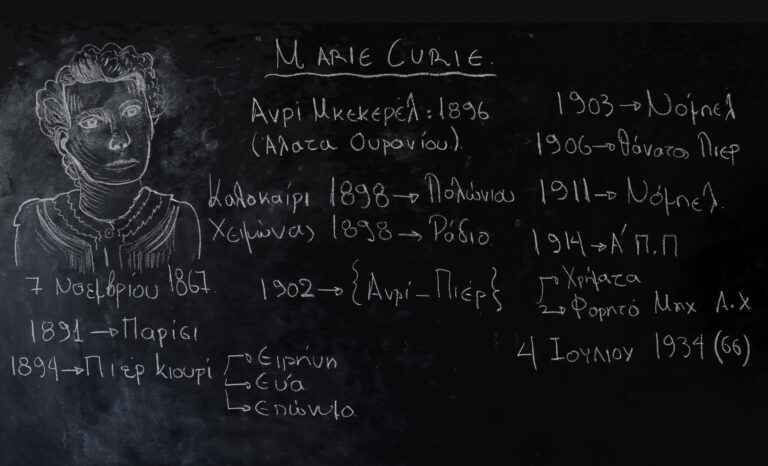 MARIE CURIE.
Ανρί Μπεκερέλ: 1896
(Άλατα Ουρανίου).
Καλοκαίρι 1898 → Πολώνιου
Χειμώνας 1898 → Ράδιο
1902 → {Ανρί - Πιέρ}
7 Νοεμβρίου 1867.
1891 → Παρίσι
1894 → Πιέρ Κιουρί
→ Ειρήνη
→ Εύα
→ Επώνυμο
1903 → Νόμπελ
1906 → Θάνατος Πιερ
1911 → Νόμπελ.
1914 → Α' Π.Π
→ Χρήματα
→ Φορητό Μηχ Α.Χ
4 Ιουλίου 1934 (66)